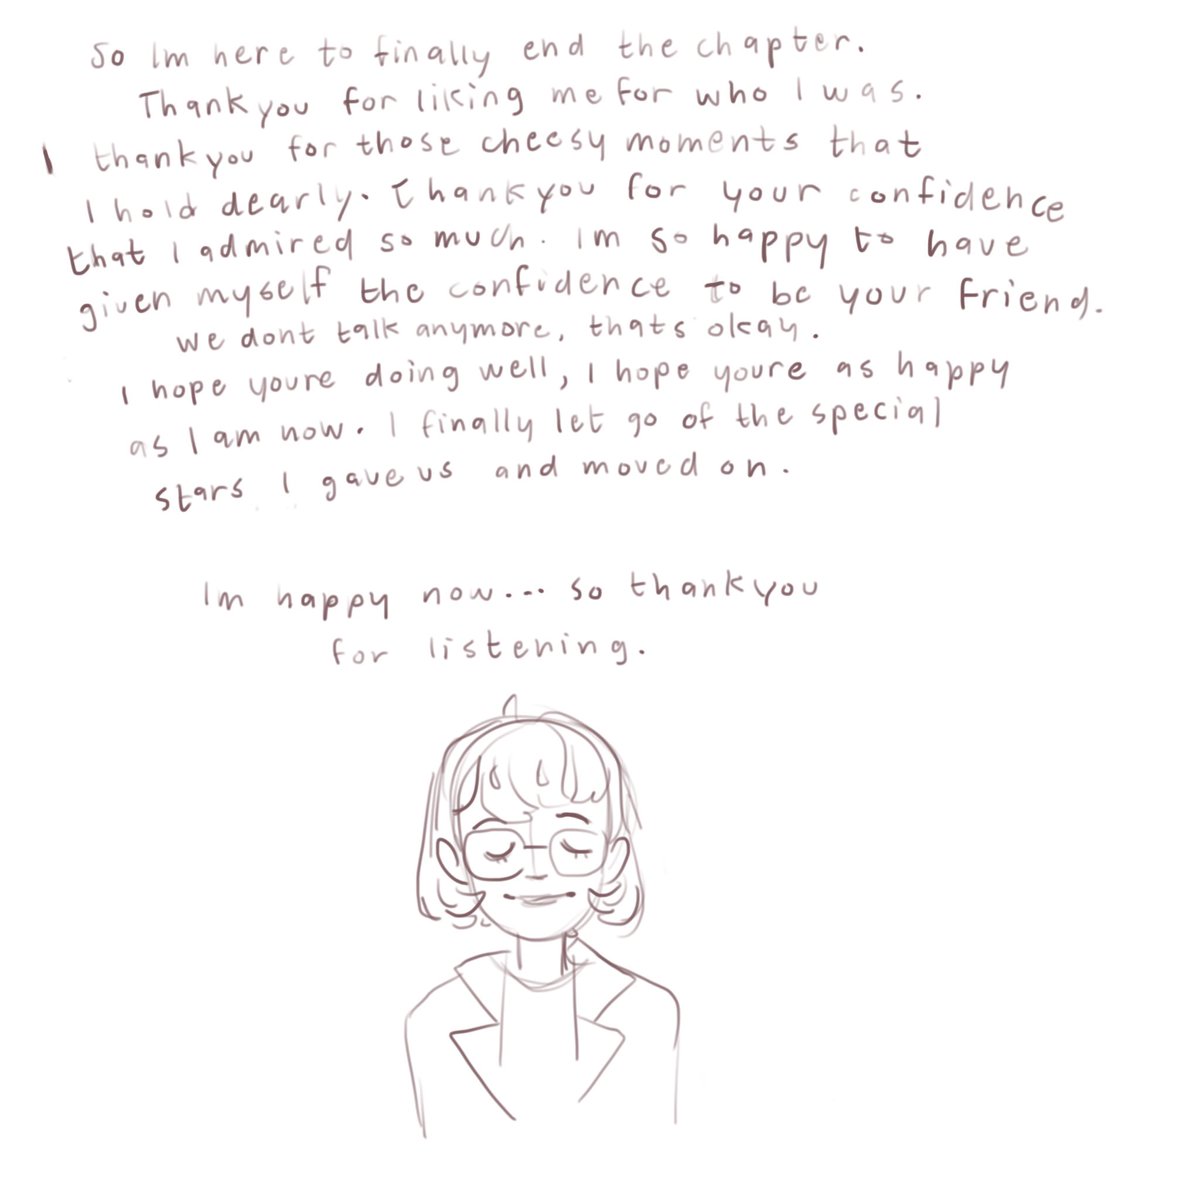 So Im here to finally end the chapter.
Thankyou for liking me for who I was.
I thankyou for those cheesy moments that
I hold dearly. Thankyou for your confidence
that I admired so much. Im so happy to have
given myself the confidence to be your friend.
we dont talk anymore, thats okay.
I hope youre doing well, I hope youre as happy
as I am now. I finally let go of the special
stars I gave us and moved on.
Im happy now... so thankyou
for listening.